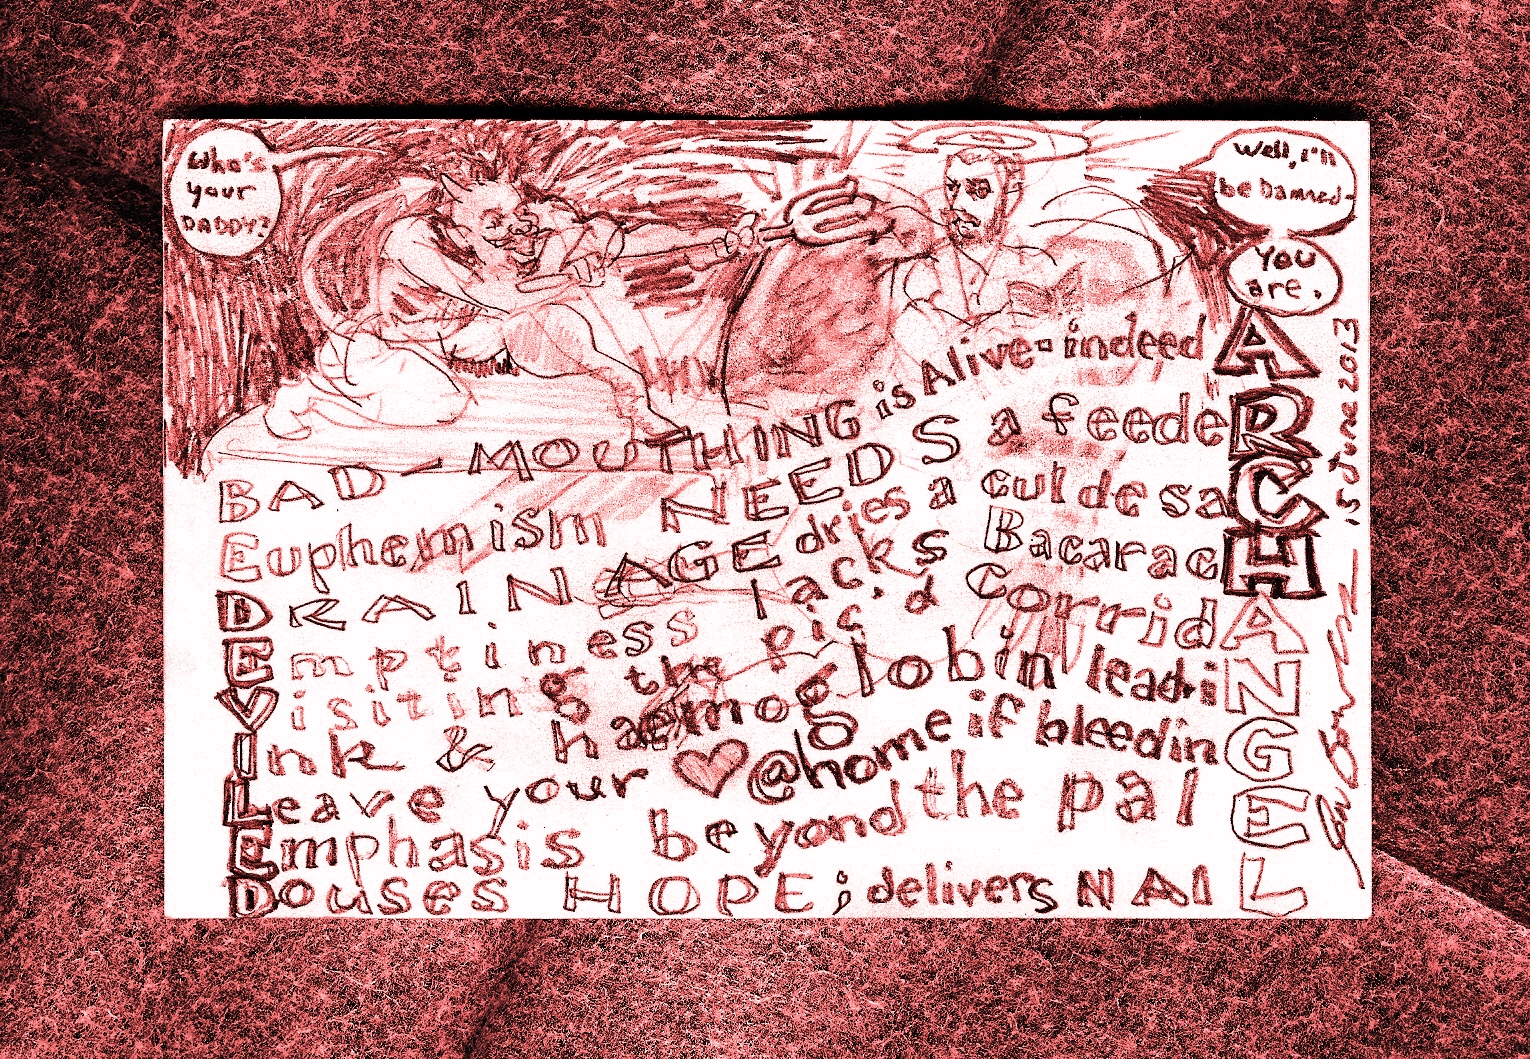 Who's
your
DADDY?
Well, I'll
be Damned.
You
are.
BAD-MOUTHING is Alive-indeed A
Euphemism NEEDS a feedeR
DRAINAGE dries a cul de saC
Emptiness lacks BacaracH
Visiting the pic'd CorridA
Ink & haemoglobin leadiN
Leave your ♥@home if bleedinG
Emphasis beyond the palE
Douses HOPE; delivers NAIL
15 June 2013